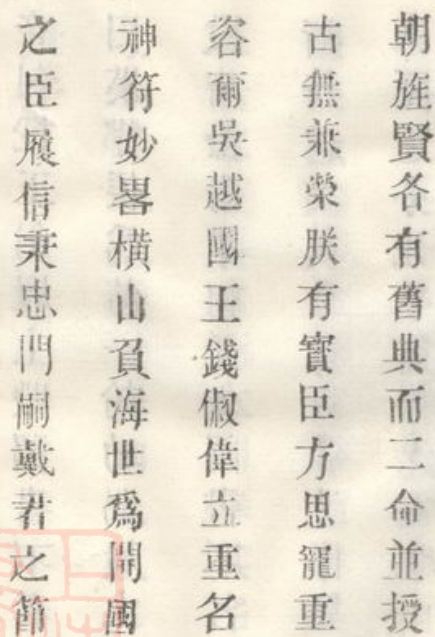 朝旌賢各有舊典而二命並授
古無兼榮朕有寳臣方思寵重
咨爾吳越國王錢俶偉立重名
神符妙畧橫山負海世爲開國
之臣履信秉忠門嗣戴君之節